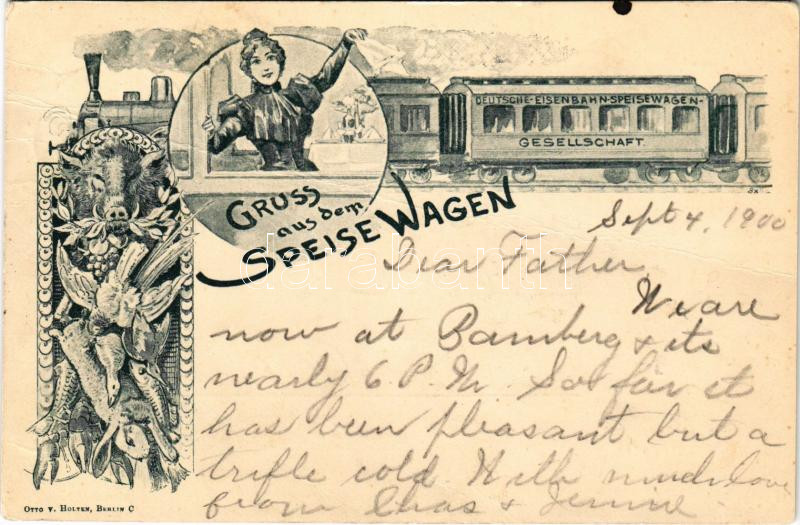 DEUTSCHE-EISENBAHN-SPEISEWAGEN-
GESELLSCHAFT.
GRUSS
aus dem
SPEISE WAGEN
Sept 4, 1900
Dear Father
We are
now at Bamberg & its
nearly 6 P.M. So far it
has been pleasant but a
trifle cold With much love
from Chas & Jennie
OTTO V. HOLTEN, BERLIN C
darabanth